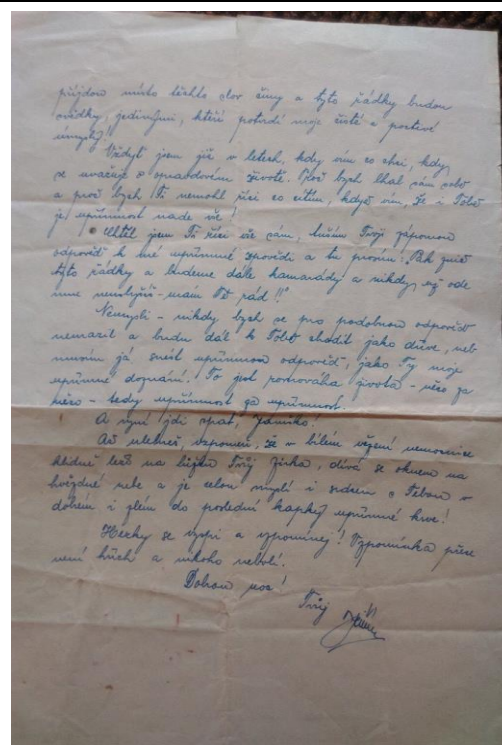 přijdou místo těchto slov činy a tyto řádky budou
svědky, jedinými, kteří potvrdí moje čisté a poctivé
úmysly!
Vždyť jsem již v letech, kdy vím co chci, kdy
se uvažuje o opravdovém životě. Proč bych lhal sám sobě
a proč bych Ti nemohl říci co cítím, když vím, že i Tobě
je upřímnost nade vše!
Chtěl jsem Ti říci vše sám, tuším Tvoji zápornou
odpověď k mé upřímné zpovědi a tu prosím: Pak znič
tyto řádky a budeme dále kamarády a nikdy už ode
mne neuslyšíš - mám Tě rád!!"
Nemysli - nikdy bych se pro podobnou odpověď
nemazlil a budu dál k Tobě chodit jako dříve, neb
musím já snést upřímnou odpověď, jako Ty moje
upřímné doznání! To jest rovnováha života - něco za
něco - tedy upřímnost za upřímnost.
A nyní jdi spát,
Až ulehneš, vzpomeň, že v bílém vězení nemocnice
klidně leží na lůžku Tvůj Jirka, dívá se oknem na
hvězdné nebe a je celou myslí i srdcem s Tebou v
dobrém i zlém do poslední kapky upřímné krve!
Hezky se vyspi a vzpomínej! Vzpomínka přece
není hřích a nikoho nebolí.
Dobrou noc!
Tvůj